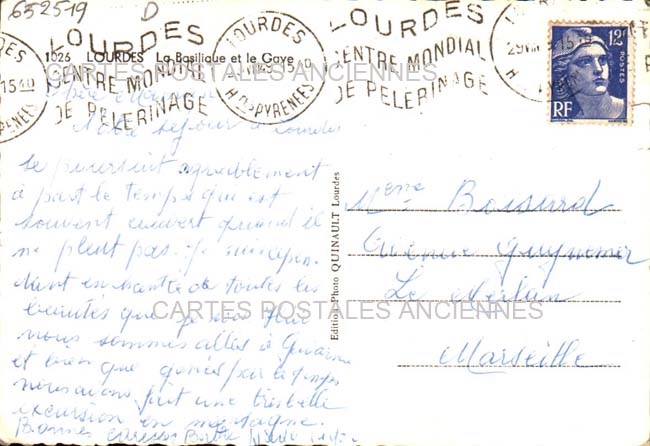 652519 D
LOURDES
CENTRE MONDIAL
DE PELERINAGE
LOURDES
15 40
HTES PYRENEES
LOURDES
CENTRE MONDIAL
DE PELERINAGE
12F
POSTES
RF
1026 LOURDES La Basilique et le Gave
CARTES POSTALES ANCIENNES
Notre séjour à Lourdes
se poursuit agréablement
à part le temps qui est
souvent couvert quand il
ne pleut pas. Je suis cepen
dant enchantée de toutes les
beautés que je vois
nous sommes allés à
et bien que gênés par le temps
nous avons fait une très belle
excursion en montagne.
Bonnes
Edition Photo QUINAULT Lourdes
Mme Boisard
Avenue Guynemer
Le
Marseille
CARTES POSTALES ANCIENNES